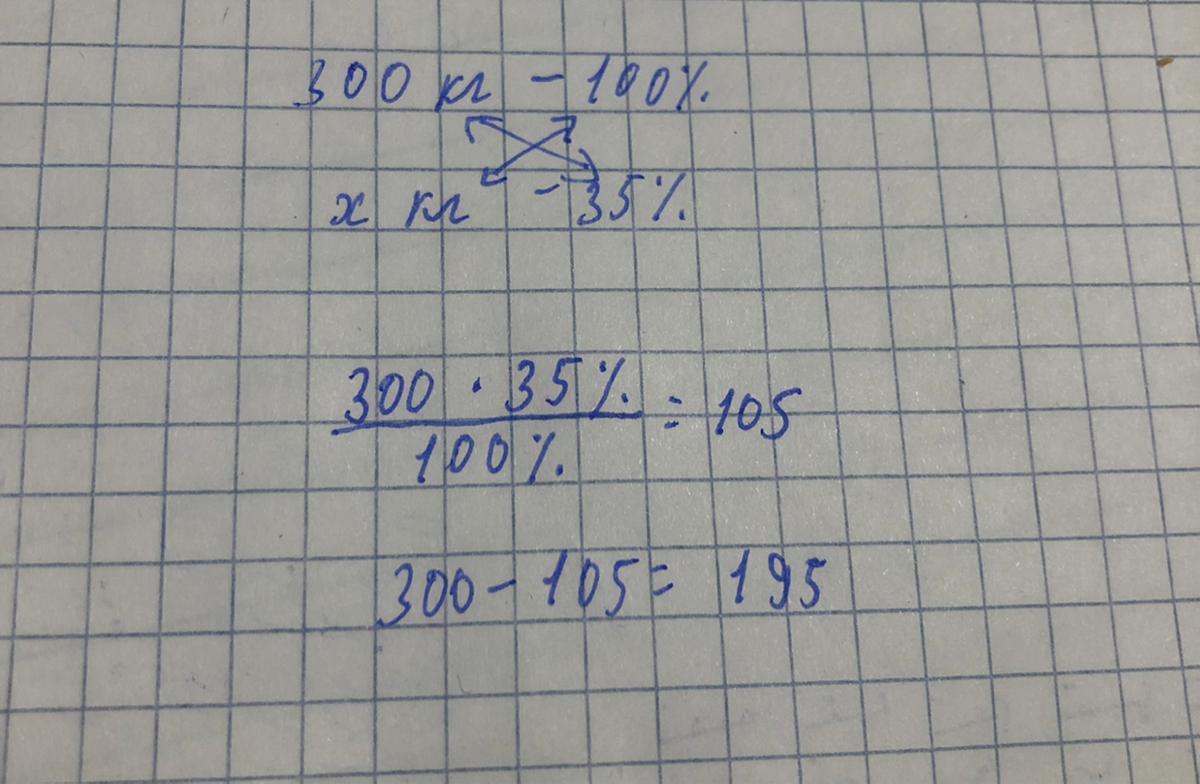 300 кг - 100%
x кг - 35%
300 · 35%
100%
= 105
300 - 105 = 195